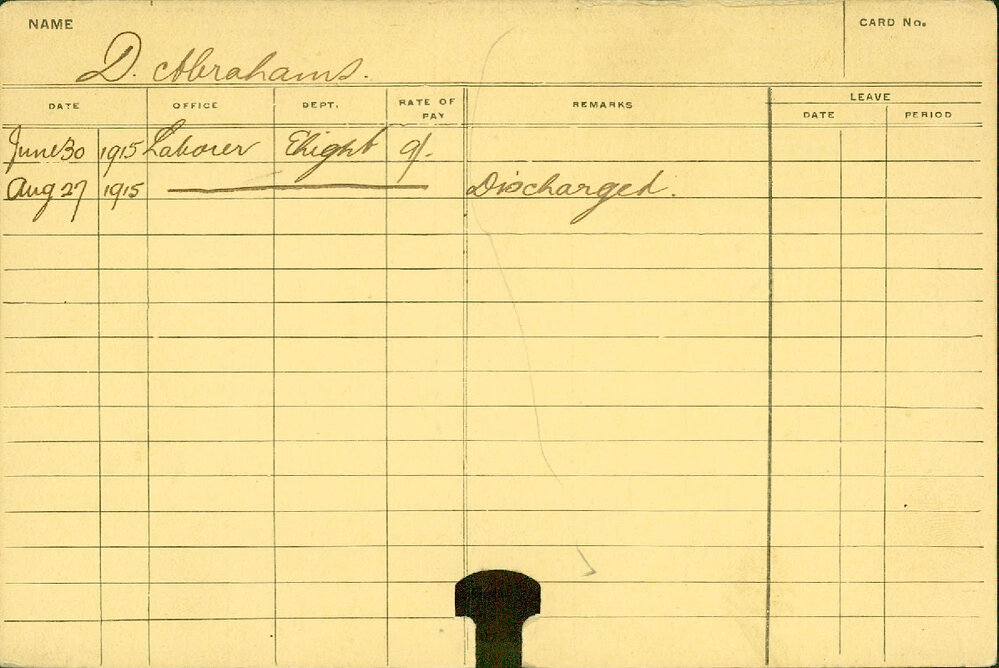 NAME
CARD No.
D. Abrahams.
DATE OFFICE DEPT. RATE OF PAY REMARKS LEAVE
DATE PERIOD
June 30 1915 Laborer 9/-
Aug 27 1915 Discharged.